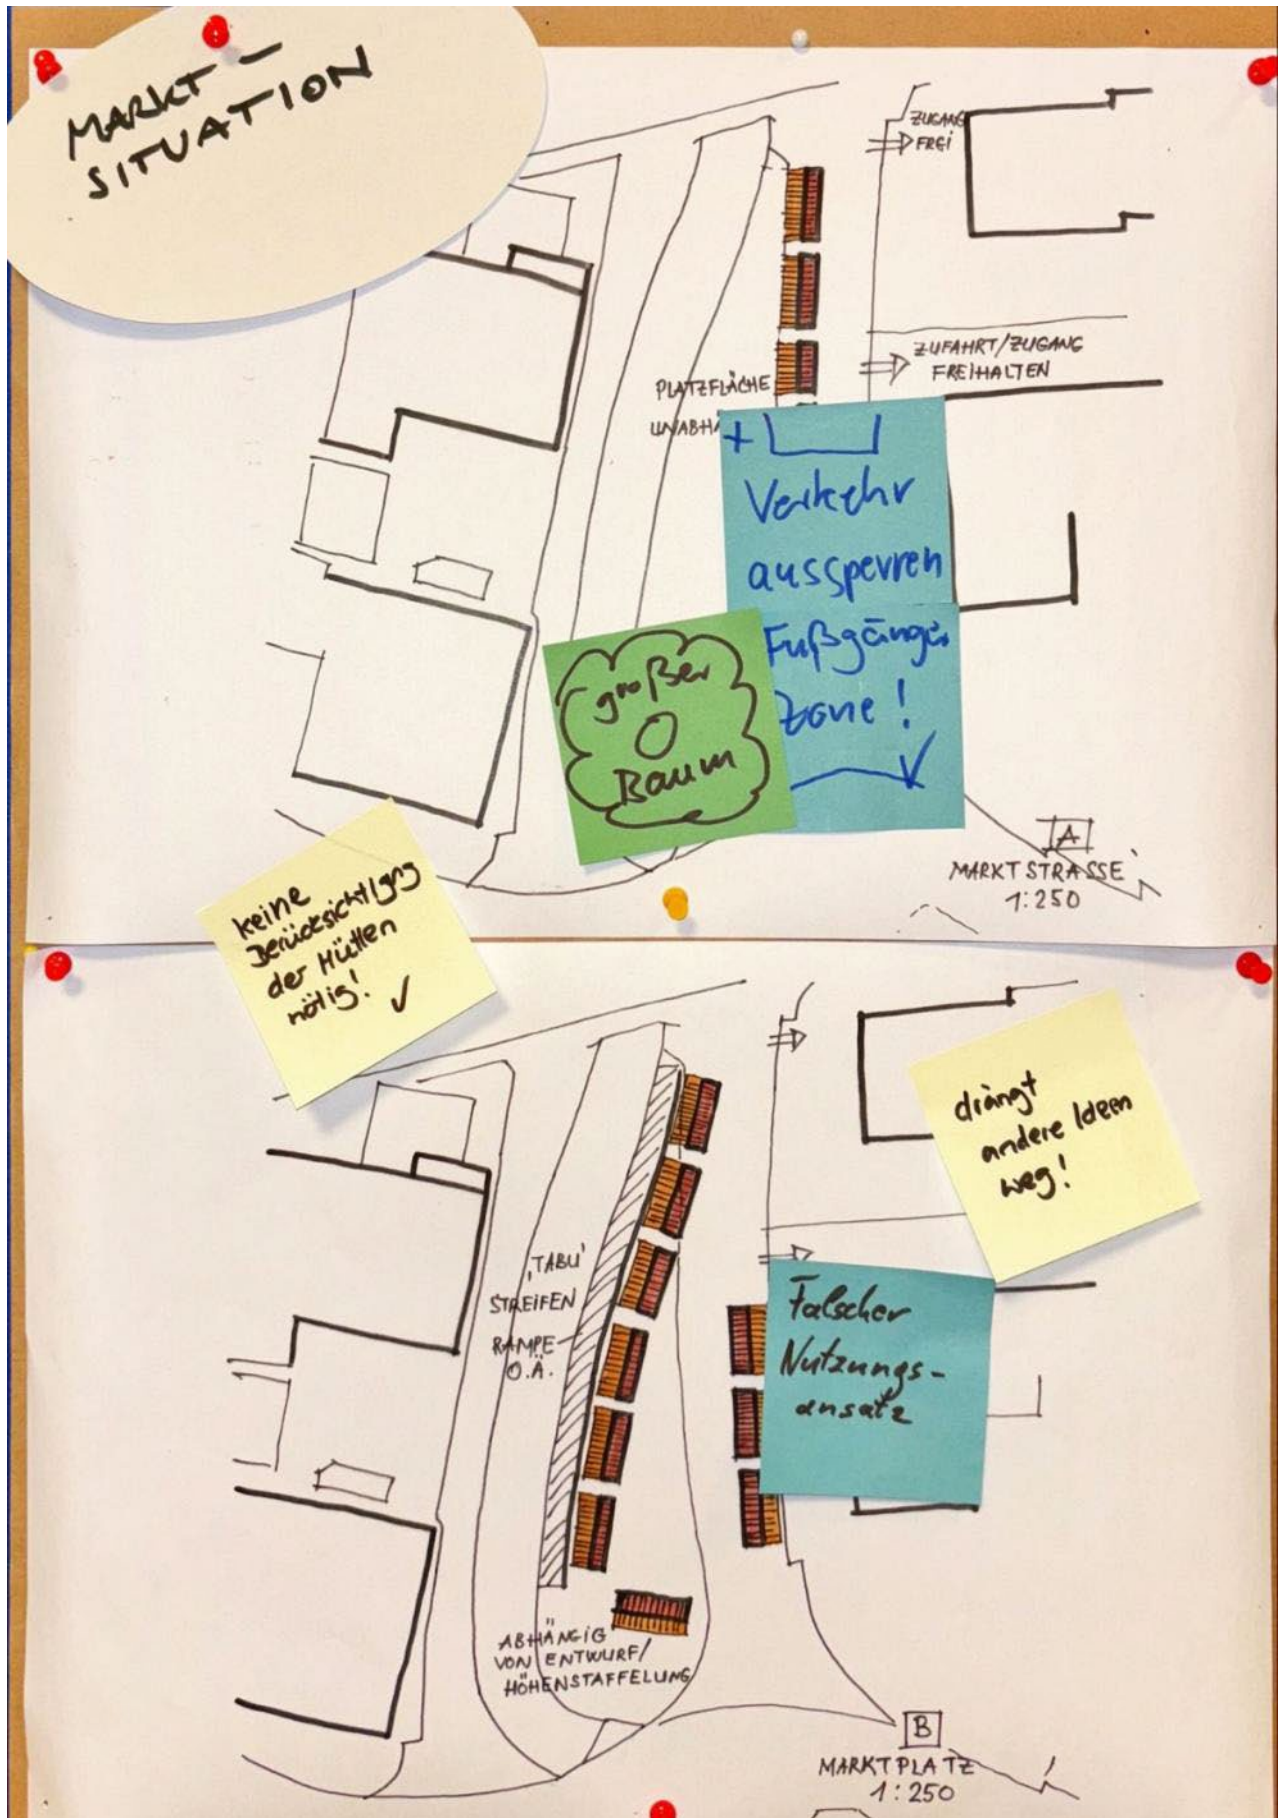 MARKT-
SITUATION
ZUGANG
FREI
ZUFAHRT/ZUGANG
FREIHALTEN
PLATZFLÄCHE
UNABHÄ
+
Verkehr
aussperren
Fußgänger
zone!
großer
Baum
A
MARKTSTRASSE
1:250
keine
Berücksichtigung
der Hütten
nötig!
drängt
andere Ideen
weg!
'TABU'
STREIFEN
RAMPE
O.Ä.
Falscher
Nutzungs-
ansatz
ABHÄNGIG
VON ENTWURF/
HÖHENSTAFFELUNG
B
MARKTPLATZ
1:250